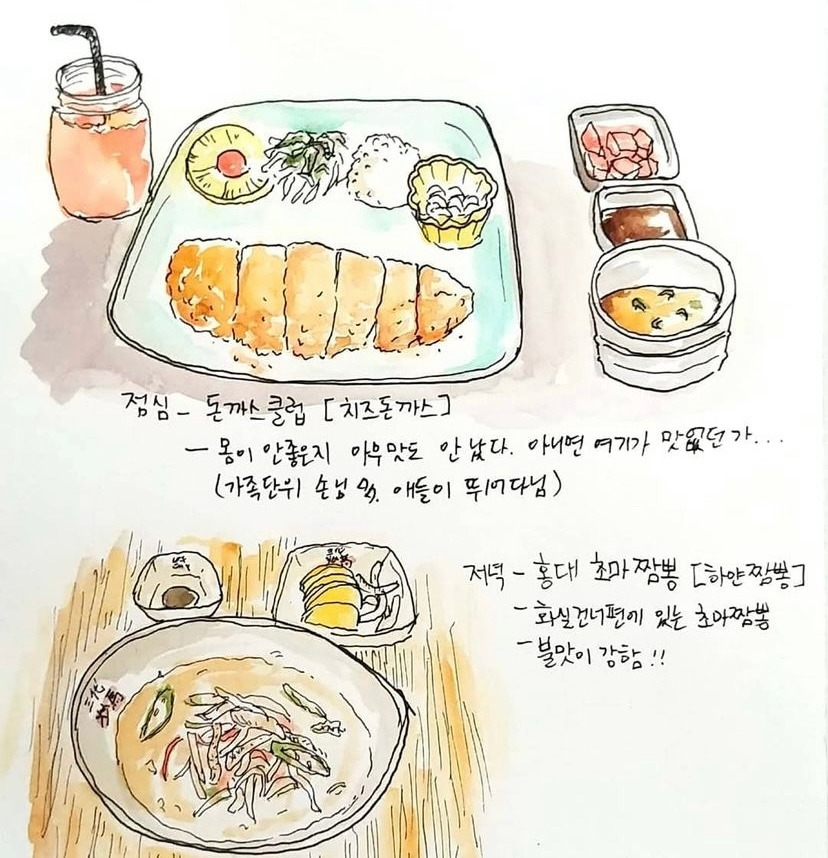 점심 - 돈까스클럽 [치즈돈까스]
- 몸이 안좋은지 아무맛도 안났다. 아니면 여기가 맛없던가...
(가족단위 손님 많, 애들이 뛰어다님)
저녁 - 홍대 초마짬뽕 [하얀짬뽕]
- 화실건너편에 있는 초마짬뽕
- 불맛이 강함!!
三代
炒馬